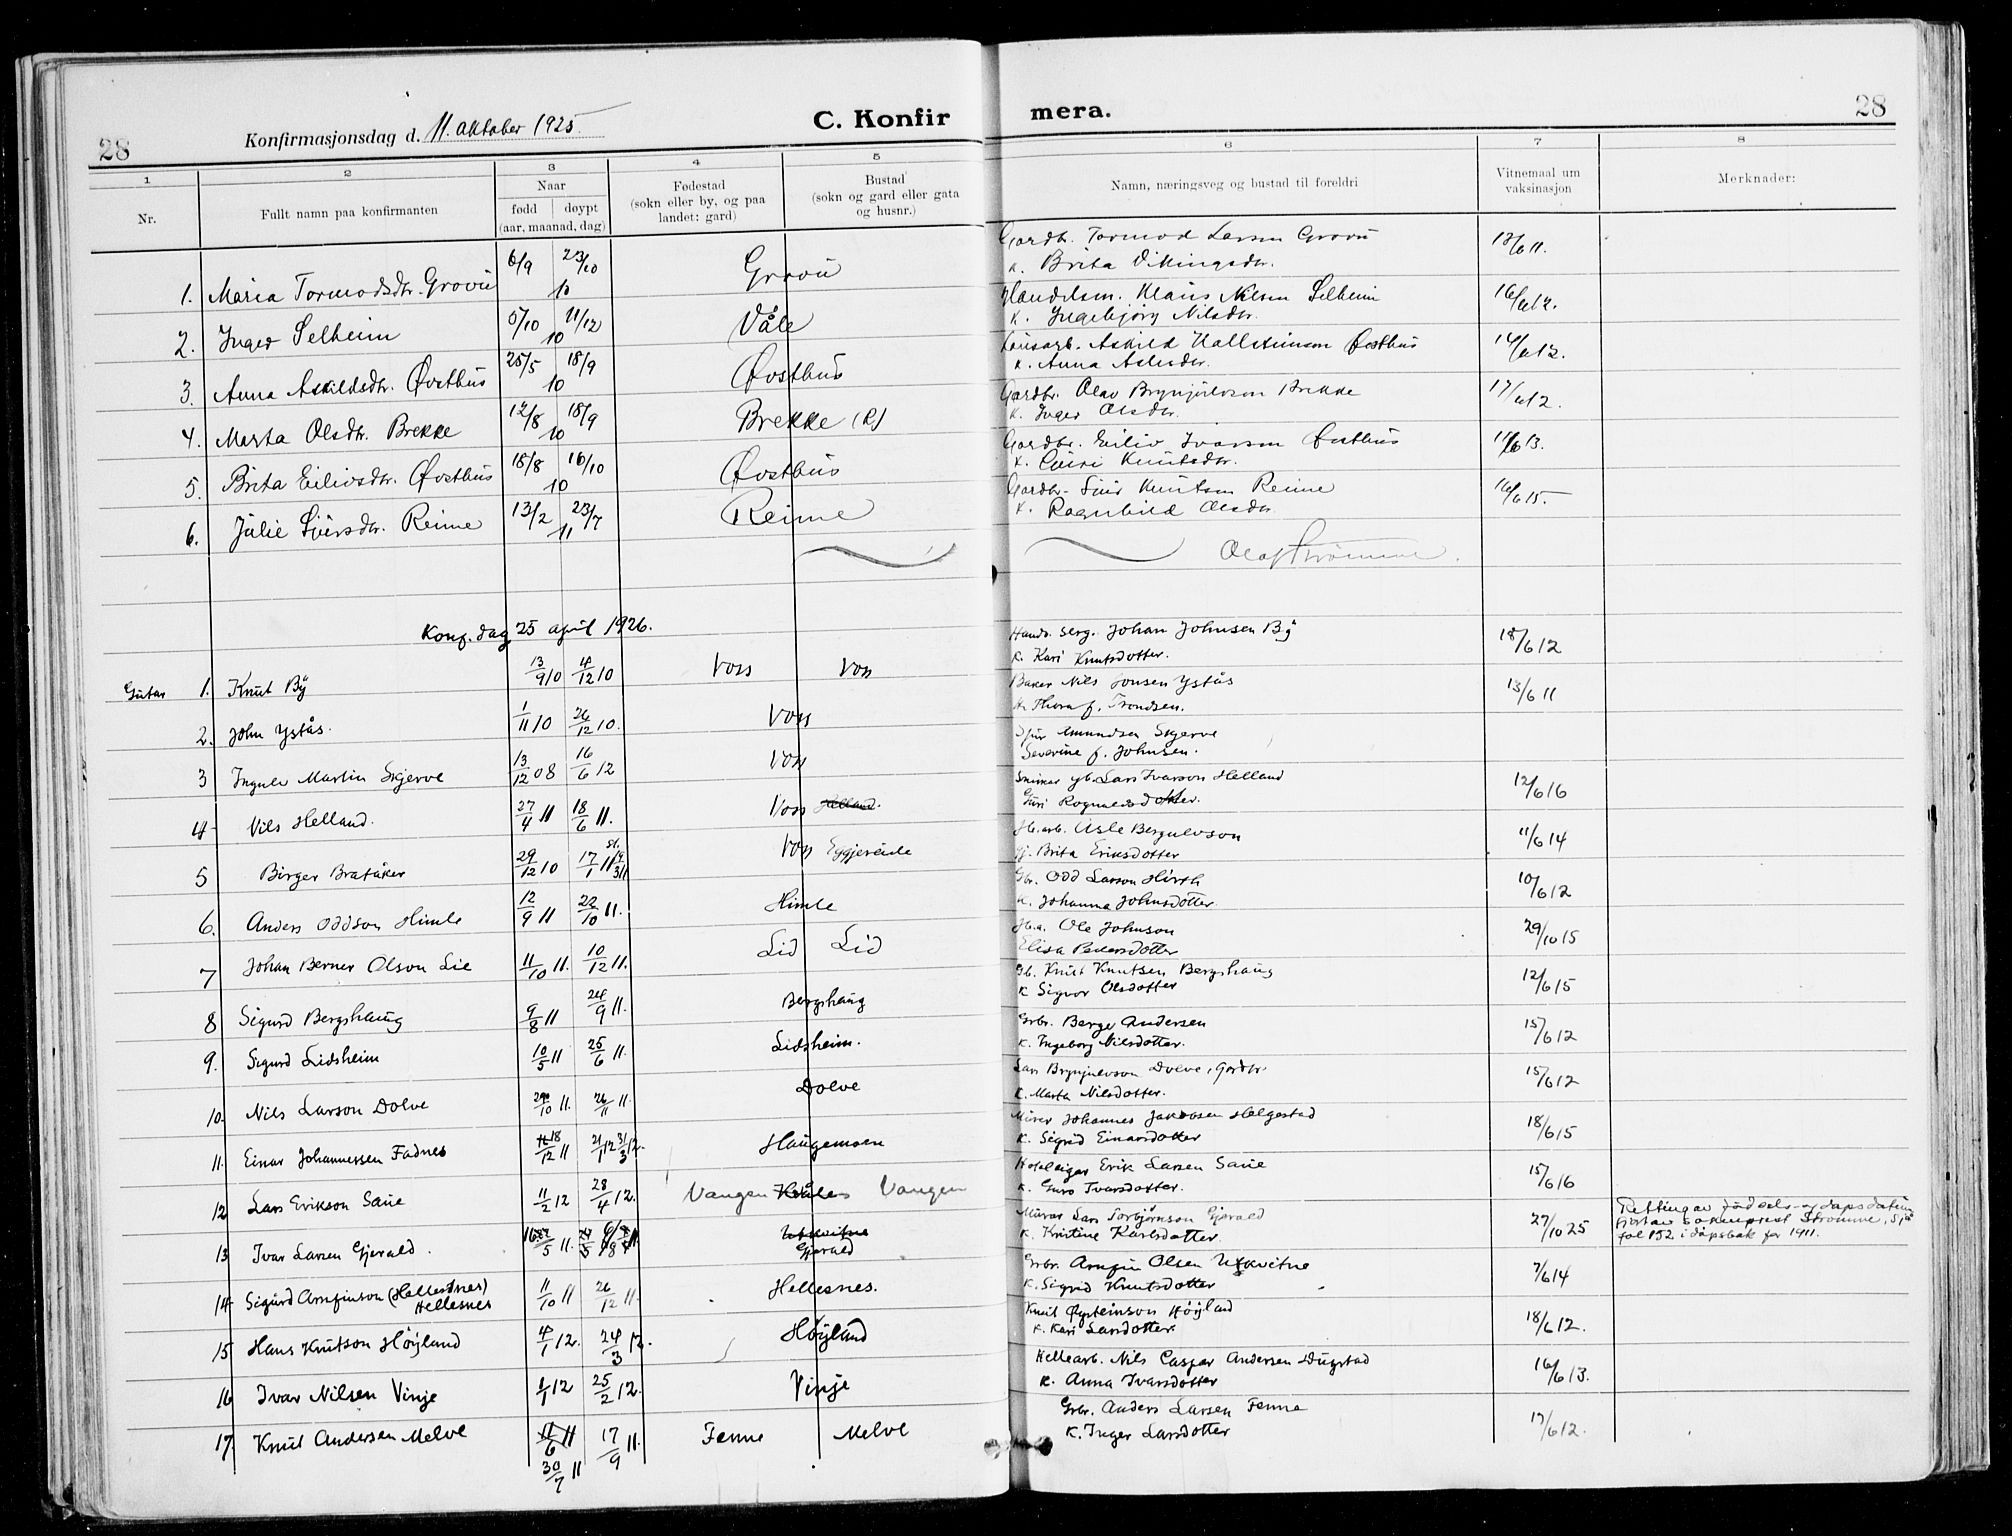 28
Konfirmasjonsdag d. 11. oktober 1925.
C. Konfir mera.
28
1 2 3 4 5 6 7 8
Nr.
Fullt namn paa konfirmanten
Naar
fødd døypt
(aar, maanad, dag)
Fødestad
(sokn eller by, og paa
landet: gard)
Bustad
(sokn og gard eller gata
og husnr.)
Namn, næringsveg og bustad til foreldri
Vitnemaal um
vaksinasjon
Merknader:
1. Maria Tormodsdtr. Grovu 6/9 23/10 10 Grovu Gardbr. Tormod Larsen Grovu 13/6 11.
k. Brita Vikingsdtr.
2. Inger Selheim 5/10 11/12 10 Våle Handelsm. Klaus Nilsen Selheim 16/6 12.
k. Ingebjørg Nilsdtr.
3. Anna Askildsdtr. Øvsthus 25/5 18/9 10 Øvsthus Lausarb. Askild Hallsteinson Øvsthus 14/6 12.
k. Anna Aslesdtr.
4. Marta Olsdtr. Brekke 12/8 18/9 10 Brekke (R) Gardbr. Olav Brynjulvson Brekke 17/6 12.
k. Inger Olsdtr.
5. Brita Eilivsdtr. Øvsthus 18/8 16/10 10 Øvsthus Gardbr. Eiliv Ivarson Øvsthus 11/6 13.
k. Guri Knutsdtr.
6. Julie Sjursdtr. Reime 13/2 23/7 11 Reime Gardbr. Sjur Knutson Reime 16/6 15.
k. Ragnhild Olsdtr.
Olaf Strømme.
Konf. dag 25 april 1926.
Gutar 1. Knut Bÿ 13/9 10 4/12 10 Voss Voss Handv. serg. Johan Johnsen Bÿ 18/6 12
k. Kari Knutsdotter.
2. John Ystås. 1/11 10 26/12 10. Voss Baker Nils Jonsen Ystås 13/6 11
k. Thora f. Trondsen.
3 Ingula Martin Skjerve 13/12 08 16/6 12 Voss Sjur Amundsen Skjerve
Severine f. Johnsen.
4 Nils Helland. 27/4 11 18/6 11. Voss Helland. Snikkar gb. Lars Ivarson Helland 12/6 16
Guri Rognaldsdotter.
5 Birger Bratåker 29/12 10 17/1 11 Voss Eggjereide Asle Bergulvson 11/6 14
Brita Eriksdotter
6. Anders Oddson Himle 12/9 11 22/10 11. Himle Gbr. Odd Larson Hirth 10/6 12
k. Johanna Johnsdotter.
7 Johan Berner Olson Lie 11/10 11. 10/12 11. Lid Lid Ole Johnson 29/10 15
Elisa Pedersdotter
8 Sigurd Bergshaug 9/8 11 24/9 11. Bergshaug Gb. Knut Knutsen Bergshaug 12/6 15
k Sigvor Olsdotter
9. Sigurd Lidsheim 10/5 11 25/6 11. Lidsheim. Grbr. Berge Andersen 15/6 12
k. Ingeborg Nilsdotter.
10. Nils Larson Dolve 29/10 11. 26/11 11. Dolve Lars Brynjulvson Dolve, Gardbr. 15/6 12
k. Marta Nilsdotter.
11. Einar Johannessen Fadnes 18/12 11 21/1 12 31/3 12. Haugamoen Murer Johannes Jakobsen Helgestad 18/6 15
k. Sigrid Einarsdotter
12 Lars Erikson Saue 11/2 12 28/4 12. Vangen Vangen Hotelleigar Erik Larsen Saue 15/6 16
k. Guro Ivarsdotter.
13 Ivar Larsen Gjerald. 16/5 11. 6/8 11. Gjerald Murar Lars Torbjørnson Gjerald 27/10 25
k. Kristine Karlsdotter.
Retting av fødsels- og dåpsdatum
sokneprest Strømme, Sjå
fol 152 i dåpsbok for 1911.
14 Sigurd Arnfinson (Hellesnes) 11/10 11 26/12 11. Hellesnes. Grbr. Arnfin Olsen Utkvitne 7/6 14
Hellesnes
k. Sigrid Knutsdotter
15 Hans Knutson Höÿland 4/1 12. 24/3 12. Höÿland Knut Øysteinson Höÿland 18/6 12.
k. Kari Larsdotter.
16 Ivar Nilsen Vinje 1/1 12 25/2 12. Vinje Hellearb. Nils Caspar Andersen Dugstad 16/6 13.
k. Anna Ivarsdotter
17. Knut Andersen Melve 11/6 11 17/9 11. Fenne Melve Grbr. Anders Larsen Fenne 17/6 12.
30/7 11
k. Inger Larsdotter